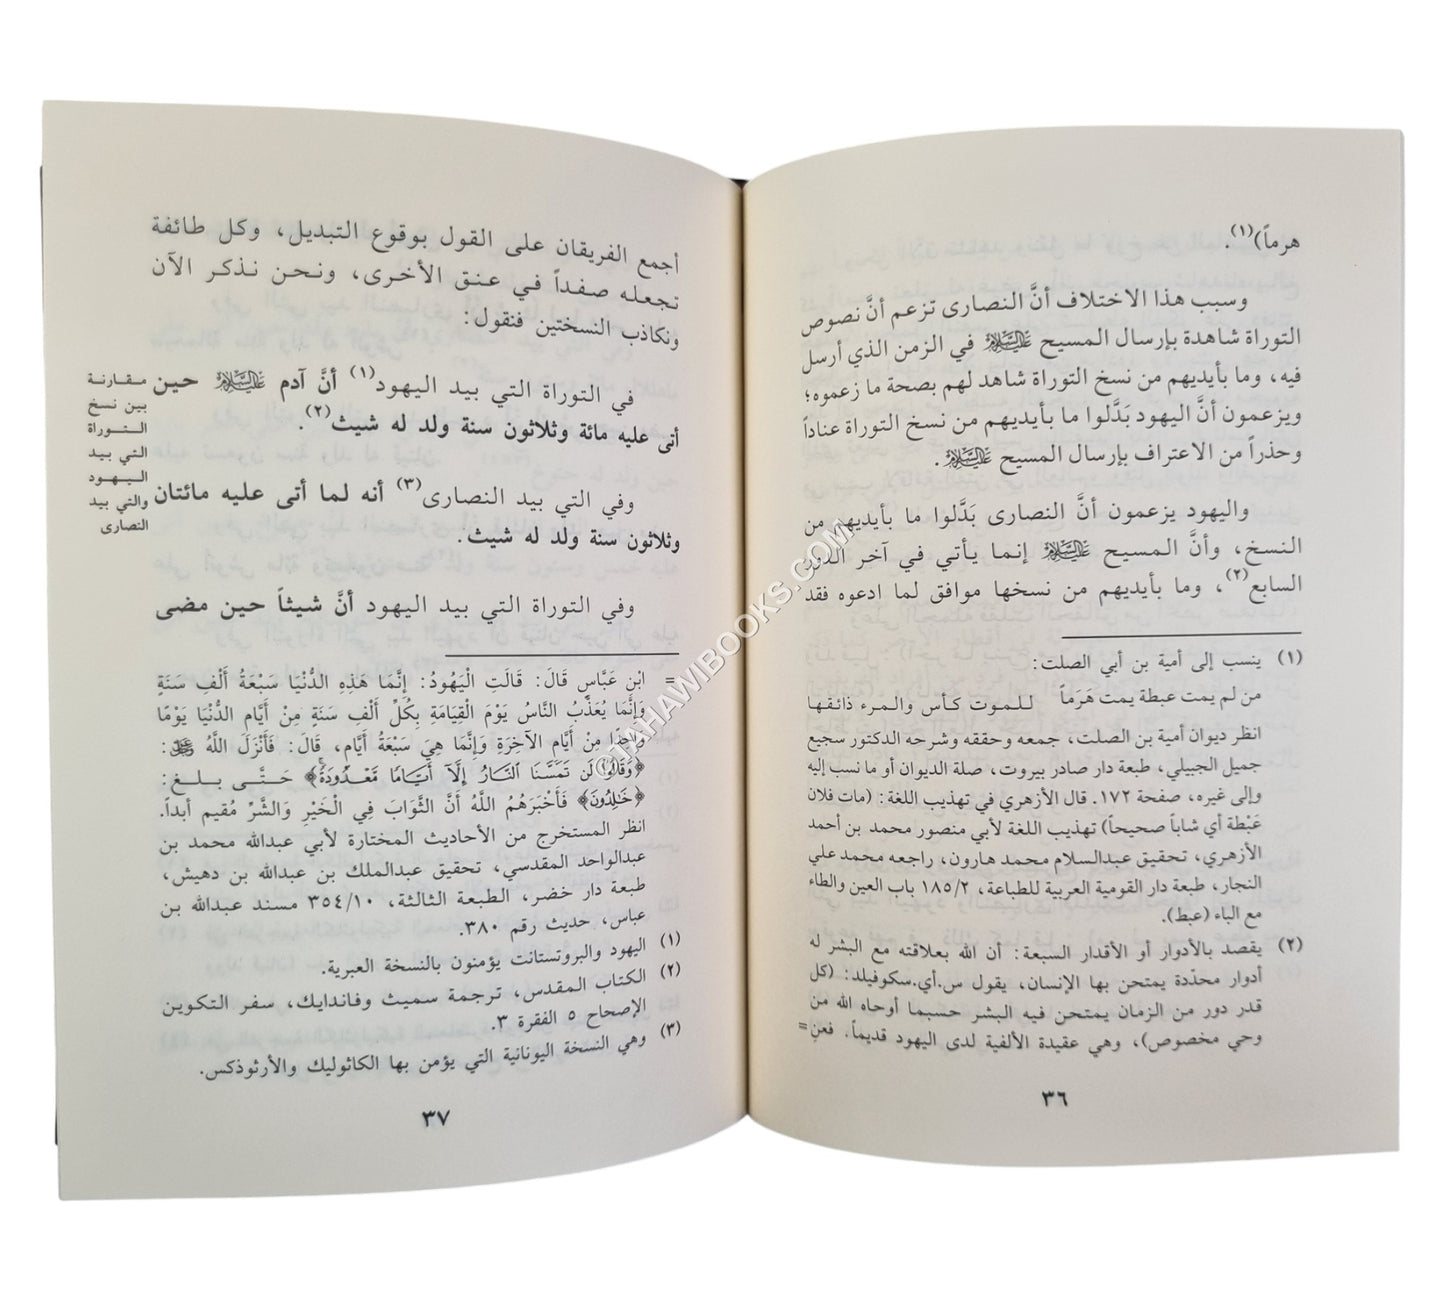 هرماً)(١).
وسبب هذا الاختلاف أنَّ النصارى تزعم أنَّ نصوص
التوراة شاهدة بإرسال المسيح عَلَيْهِ السَّلَامُ في الزمن الذي أرسل
فيه، وما بأيديهم من نسخ التوراة شاهد لهم بصحة ما زعموه؛
ويزعمون أنَّ اليهود بَدَّلوا ما بأيديهم من نسخ التوراة عناداً
وحذراً من الاعتراف بإرسال المسيح عَلَيْهِ السَّلَامُ.
واليهود يزعمون أنَّ النصارى بَدَّلوا ما بأيديهم من
النسخ، وأنَّ المسيح عَلَيْهِ السَّلَامُ إنما يأتي في آخر الدور
السابع(٢)، وما بأيديهم من نسخها موافق لما ادعوه فقد
(١) ينسب إلى أمية بن أبي الصلت:
من لم يمت عبطة يمت هَرَماً للموت كأس والمرء ذائقها
انظر ديوان أمية بن الصلت، جمعه وحققه وشرحه الدكتور سجيع
جميل الجبيلي، طبعة دار صادر بيروت، صلة الديوان أو ما نسب إليه
وإلى غيره، صفحة ١٧٢. قال الأزهري في تهذيب اللغة: (مات فلان
عَبْطة أي شاباً صحيحاً) تهذيب اللغة لأبي منصور محمد بن أحمد
الأزهري، تحقيق عبدالسلام محمد هارون، راجعه محمد علي
النجار، طبعة دار القومية العربية للطباعة، ١٨٥/٢ باب العين والطاء
مع الباء (عبط).
(٢) يقصد بالأدوار أو الأقدار السبعة: أن الله بعلاقته مع البشر له
أدوار محدّدة يمتحن بها الإنسان، يقول س.أي.سكوفيلد: (كل
قدر دور من الزمان يمتحن فيه البشر حسبما أوحاه الله من
وحي مخصوص)، وهي عقيدة الألفية لدى اليهود قديماً. فعنِ=
٣٦
أجمع الفريقان على القول بوقوع التبديل، وكل طائفة
تجعله صفداً في عنق الأخرى، ونحن نذكر الآن
تكاذب النسختين فنقول:
في التوراة التي بيد اليهود(١) أنَّ آدم عَلَيْهِ السَّلَامُ حين
أتى عليه مائة وثلاثون سنة ولد له شيث(٢).
وفي التي بيد النصارى(٣) أنه لما أتى عليه مائتان
وثلاثون سنة ولد له شيث.
وفي التوراة التي بيد اليهود أنَّ شيثاً حين مضى
مقارنة
بين نسخ
التوراة
التي بيد
اليهود
والتي بيد
النصارى
= ابْنِ عَبَّاسٍ قَالَ: قَالَتِ الْيَهُودُ: إِنَّمَا هَذِهِ الدُّنْيَا سَبْعَةُ أَلْفِ سَنَةٍ
وَإِنَّمَا يُعَذَّبُ النَّاسُ يَوْمَ الْقِيَامَةِ بِكُلِّ أَلْفِ سَنَةٍ مِنْ أَيَّامِ الدُّنْيَا يَوْمًا
وَاحِدًا مِنْ أَيَّامِ الآخِرَةِ وَإِنَّمَا هِيَ سَبْعَةُ أَيَّامٍ، قَالَ: فَأَنْزَلَ اللَّهُ :
﴿وَقَالُوا لَن تَمَسَّنَا النَّارُ إِلَّا أَيَّامًا مَّعْدُودَةً﴾ حَتَّى بلغ:
﴿خَالِدُونَ﴾ فَأَخْبَرَهُمُ اللَّهُ أَنَّ الثَّوَابَ فِي الْخَيْرِ وَالشَّرِّ مُقيم أبداً.
انظر المستخرج من الأحاديث المختارة لأبي عبدالله محمد بن
عبدالواحد المقدسي، تحقيق عبدالملك بن عبدالله بن دهيش،
طبعة دار خضر، الطبعة الثالثة، ٣٥٤/١٠ مسند عبدالله بن
عباس، حديث رقم ٣٨٠.
(١) اليهود والبروتستانت يؤمنون بالنسخة العبرية.
(٢) الكتاب المقدس، ترجمة سميث وفاندايك، سفر التكوين
الإصحاح ٥ الفقرة ٣.
(٣) وهي النسخة اليونانية التي يؤمن بها الكاثوليك والأرثوذكس.
٣٧
©JAHAWIBOOKS.COM